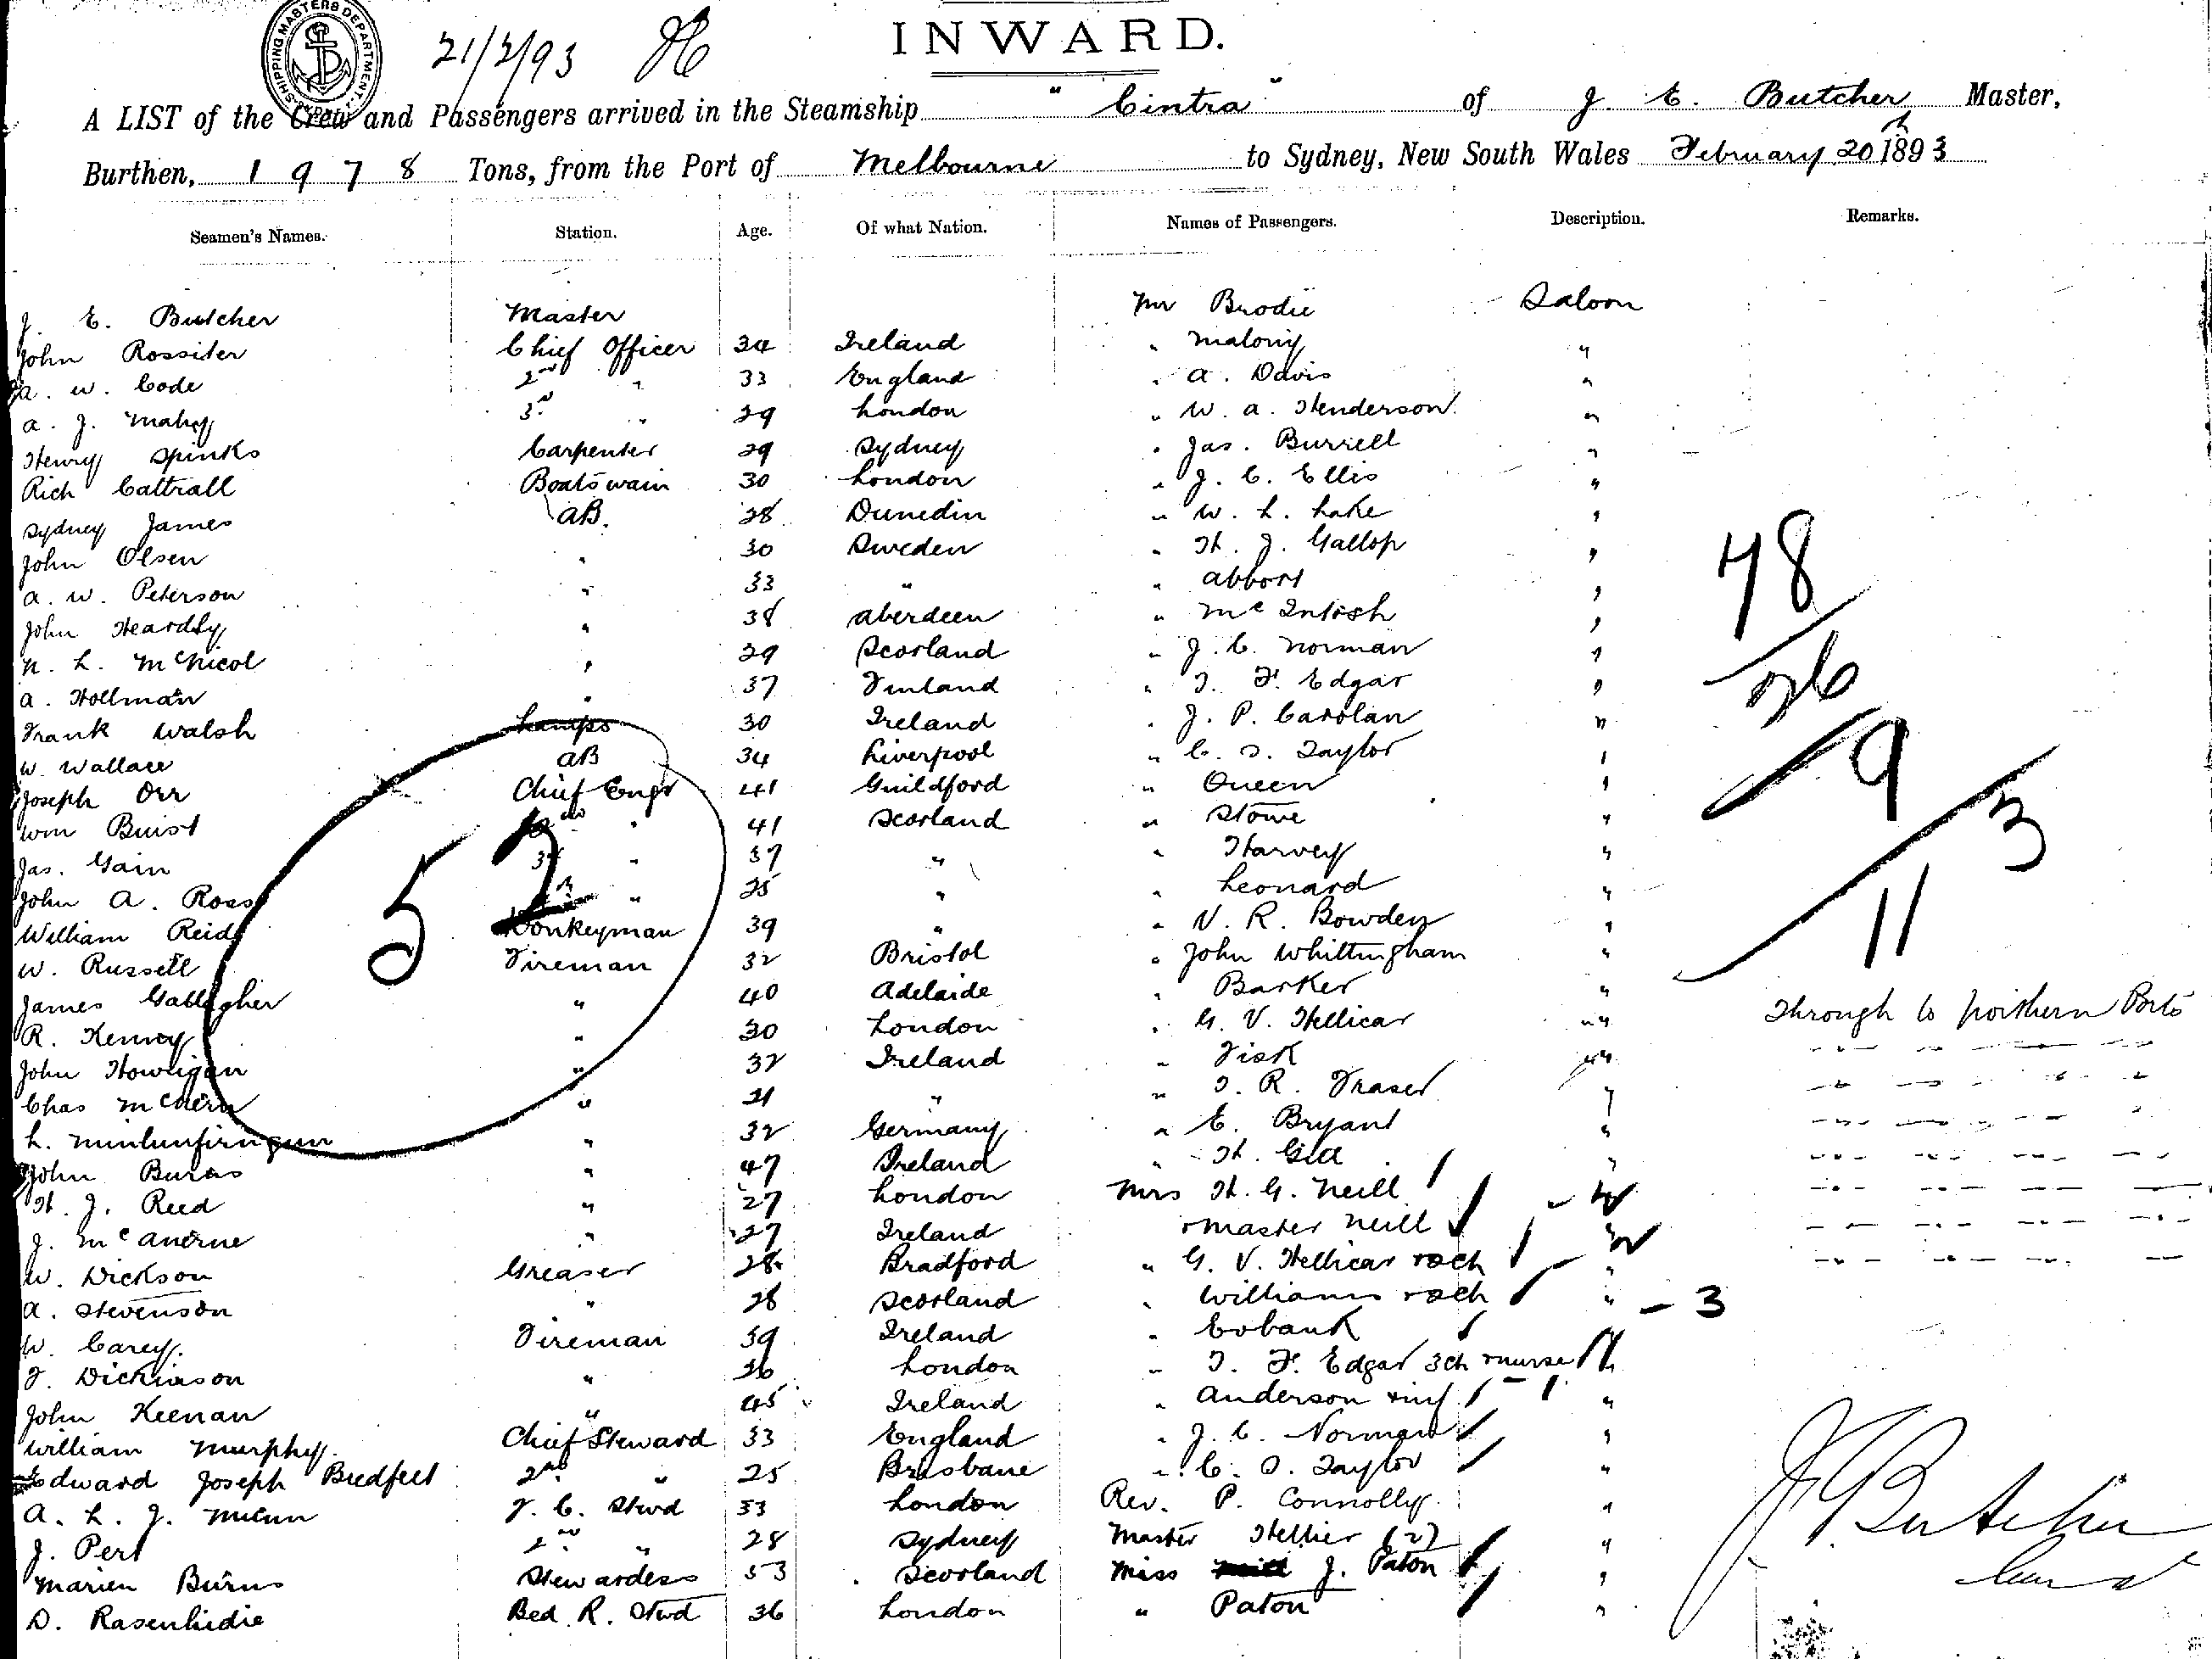 SHIPPING MASTERS DEPARTMENT
21/2/93
INWARD.
A LIST of the Crew and Passengers arrived in the Steamship "Cintra" of J. E. Butcher Master,
Burthen, 1978 Tons, from the Port of Melbourne to Sydney, New South Wales February 20th 1893
Seamen's Names. Station. Age. Of what Nation. Names of Passengers. Description. Remarks.
J. E. Butcher Master Mr Brodie Saloon
John Rossiter Chief Officer 34 Ireland " Malony "
A. W. Code 2nd " 33 England " A. Davis "
A. J. Mahy 3rd " 29 London " W. A. Henderson "
Henry Spinks Carpenter 29 Sydney " Jas. Burrell "
Rich Cattrall Boatswain 30 London " J. C. Ellis "
Sydney James AB. 28 Dunedin " W. L. Lake "
John Olsen " 30 Sweden " H. J. Gallop "
A. W. Peterson " 33 " " Abbott "
John Heardly " 38 Aberdeen " McIntosh "
N. L. McNicol " 29 Scotland " J. C. Norman "
A. Hollman " 37 Finland " T. F. Edgar "
Frank Walsh Lamps 30 Ireland " J. P. Carolan "
W. Wallace AB 34 Liverpool " C. S. Taylor "
Joseph Orr Chief Engr 41 Guildford " Queen "
Wm Buist 2nd " 41 Scotland " Stowe "
Jas. Gain 3rd " 37 " " Harvey "
John A. Ross " 25 " " Leonard "
William Reid Donkeyman 39 " " V. R. Bowden "
W. Russell Fireman 32 Bristol " John Whittingham "
James Gallagher " 40 Adelaide " Barker "
R. Kenney " 30 London " G. V. Hellicar " Through to Northern Ports
John Howrigan " 32 Ireland " Fisk "
Chas " 21 " " T. R. Fraser "
L. " 32 Germany " E. Bryant "
John Burns " 47 Ireland " H. "
H. J. Reed " 27 London Mrs H. G. Neill "
J. McAnerne " 27 Ireland + Master Neill "
W. Dickson Greaser 28 Bradford " G. V. Hellicar + 2ch "
A. Stevenson " 28 Scotland " Williams + 2ch " - 3
W. Carey. Fireman 39 Ireland " Eubank
F. Dickinson " 26 London " T. F. Edgar 3ch + nurse
John Keenan " 45 Ireland " Anderson + inf "
William Murphy. Chief Steward 33 England " J. C. Norman "
Edward Joseph Bredfelt 2nd " 25 Brisbane " C. S. Taylor "
A. L. J. F. C. Stwd 33 London Rev. P. Connolly "
J. Pert 2nd " 28 Sydney Master Hellier (2) "
Marien Burns Stewardess 53 Scotland Miss J. Paton "
D. Bed. R. Stwd 36 London " Paton "
52
78
26
9
3
11
J. E. Butcher